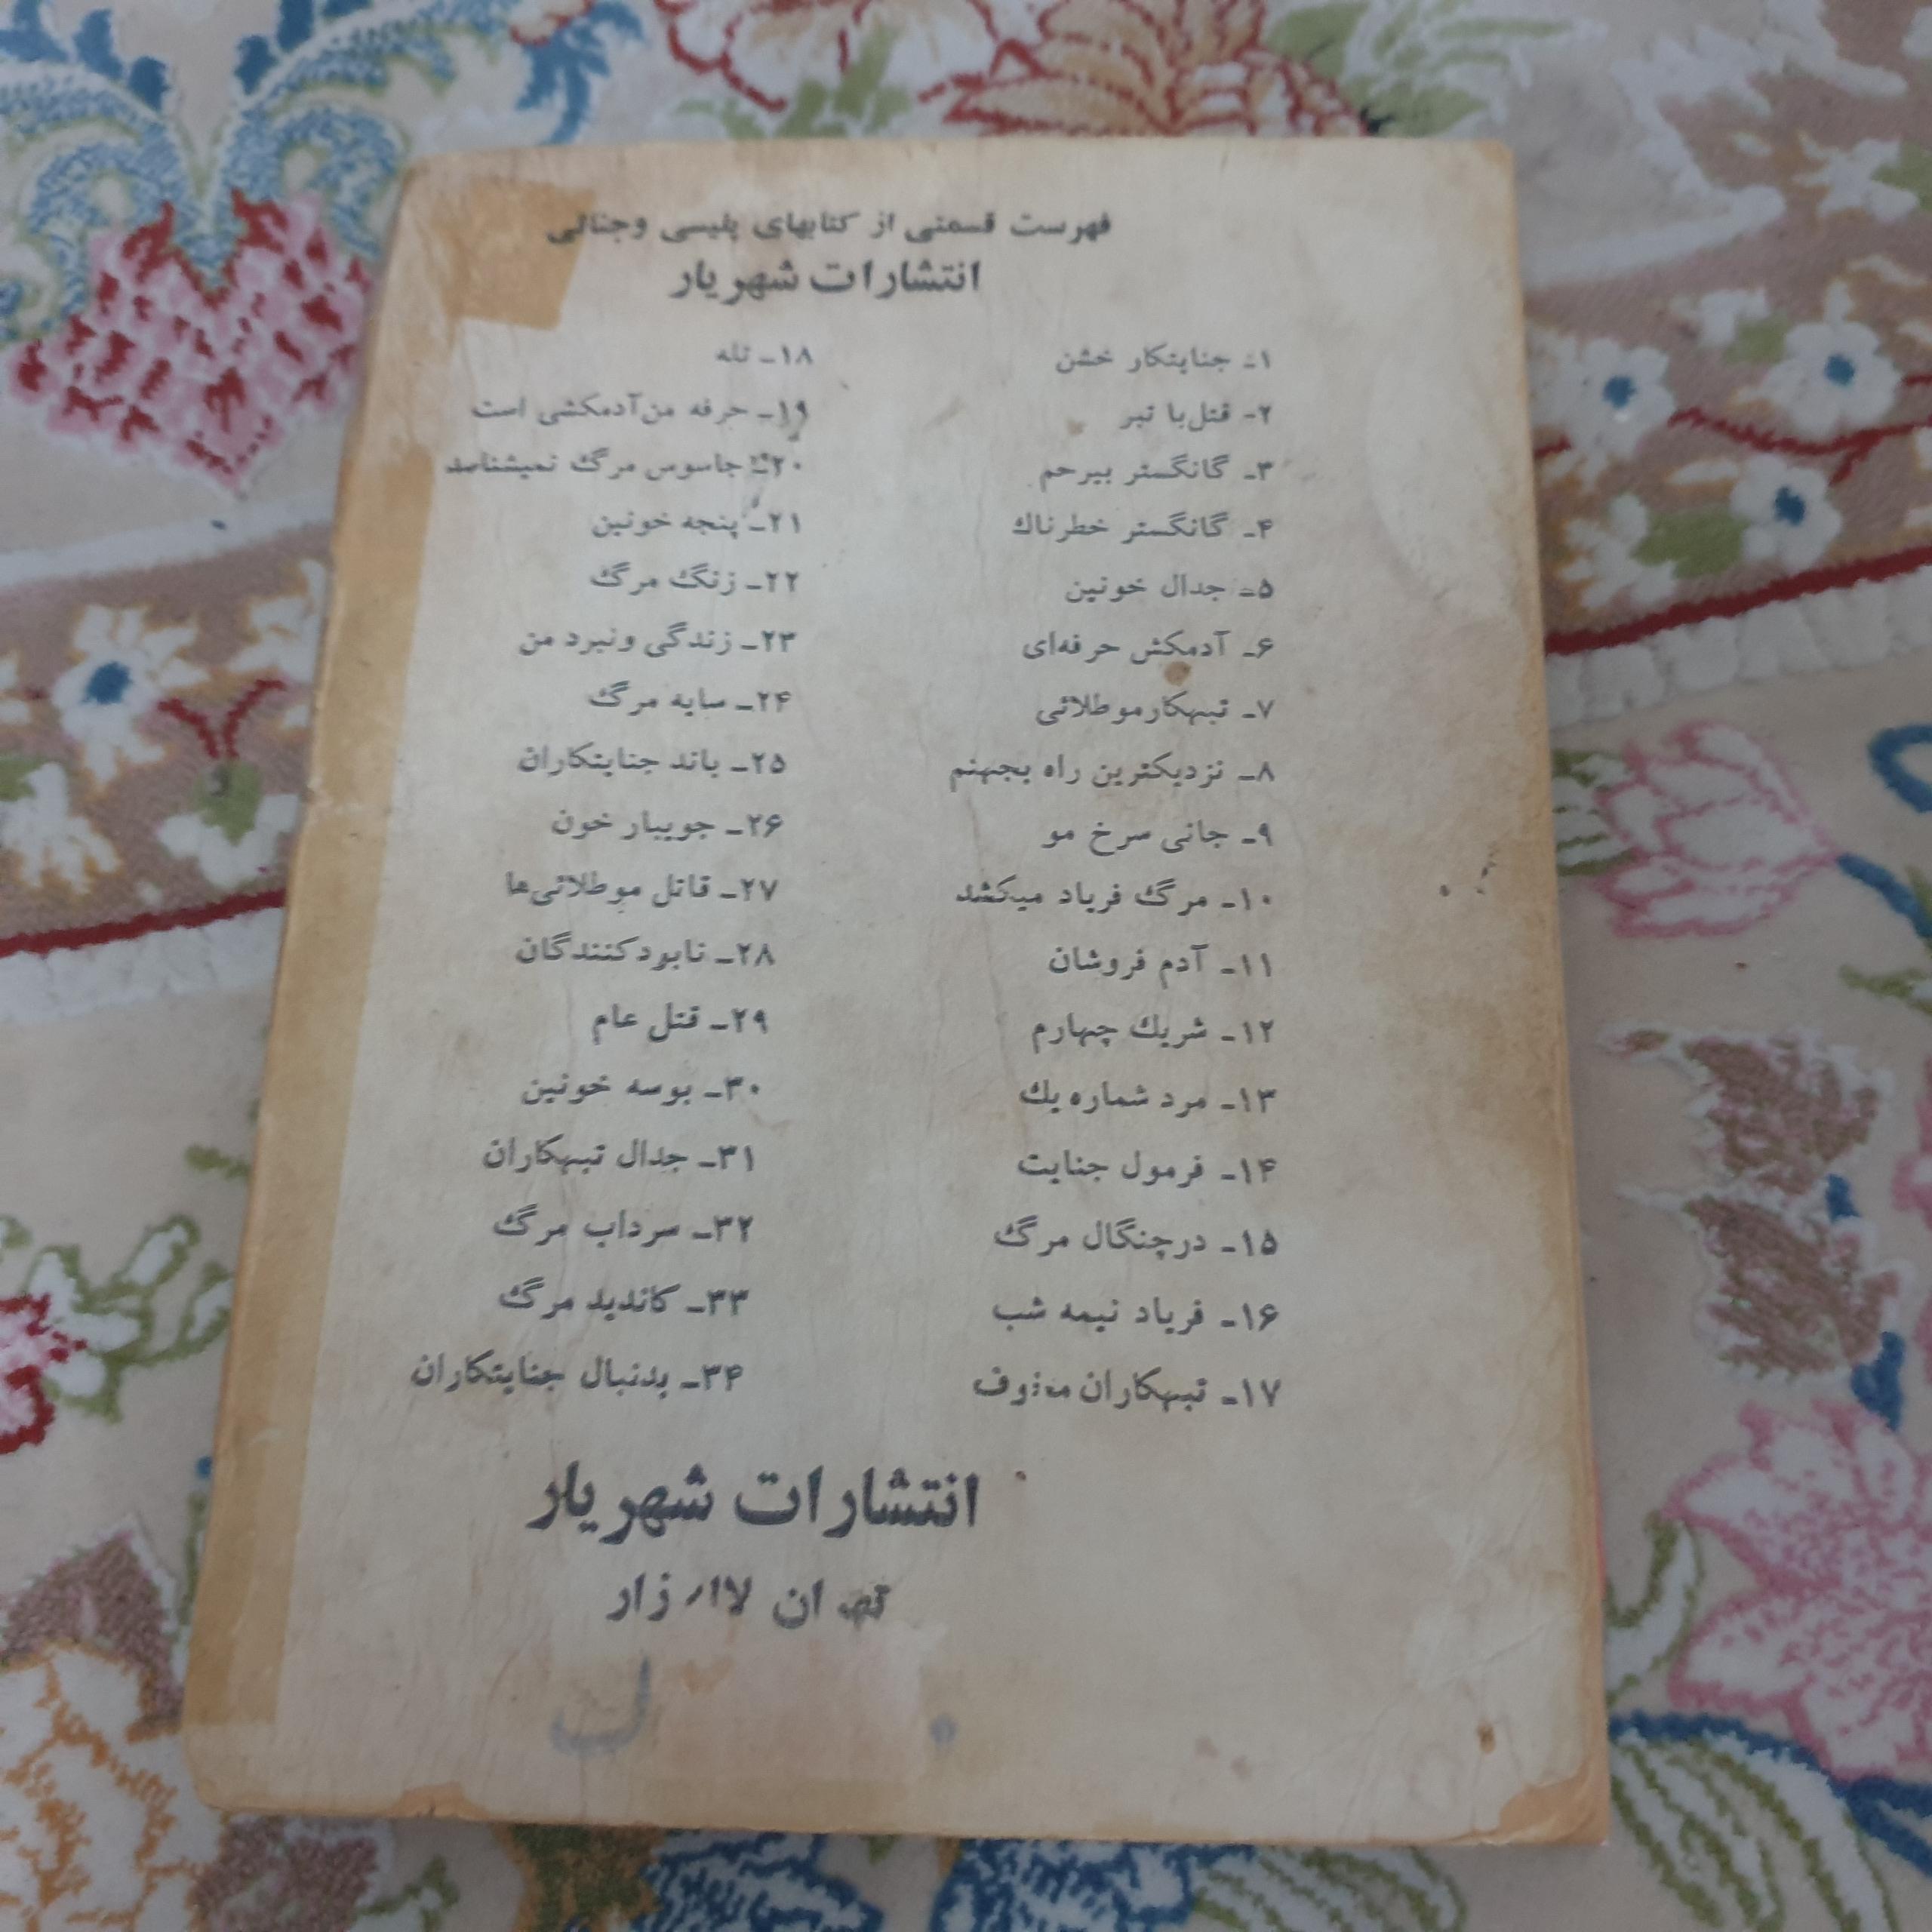 فهرست قسمتی از کتابهای پلیسی وجنائی
انتشارات شهریار
۱ـ جنایتکار خشن
۲ـ قتل با تبر
۳ـ گانگستر بیرحم
۴ـ گانگستر خطرناك
۵ـ جدال خونین
۶ـ آدمکش حرفه‌ای
۷ـ تبهکارموطلائی
۸ـ نزدیکترین راه بجهنم
۹ـ جانی سرخ مو
۱۰ـ مرگ فریاد میکشد
۱۱ـ آدم فروشان
۱۲ـ شریك چهارم
۱۳ـ مرد شماره یك
۱۴ـ فرمول جنایت
۱۵ـ درچنگال مرگ
۱۶ـ فریاد نیمه شب
۱۷ـ تبهکاران
۱۸ـ تله
۱۹ـ حرفه من‌آدمکشی است
۲۰ـ جاسوس مرگ نمیشناسد
۲۱ـ پنجه خونین
۲۲ـ زنگ مرگ
۲۳ـ زندگی ونبرد من
۲۴ـ سایه مرگ
۲۵ـ باند جنایتکاران
۲۶ـ جویبار خون
۲۷ـ قاتل موطلائی‌ها
۲۸ـ نابودکنندگان
۲۹ـ قتل عام
۳۰ـ بوسه خونین
۳۱ـ جدال تبهکاران
۳۲ـ سرداب مرگ
۳۳ـ کاندید مرگ
۳۴ـ بدنبال جنایتکاران
انتشارات شهریار
تهران لاله زار